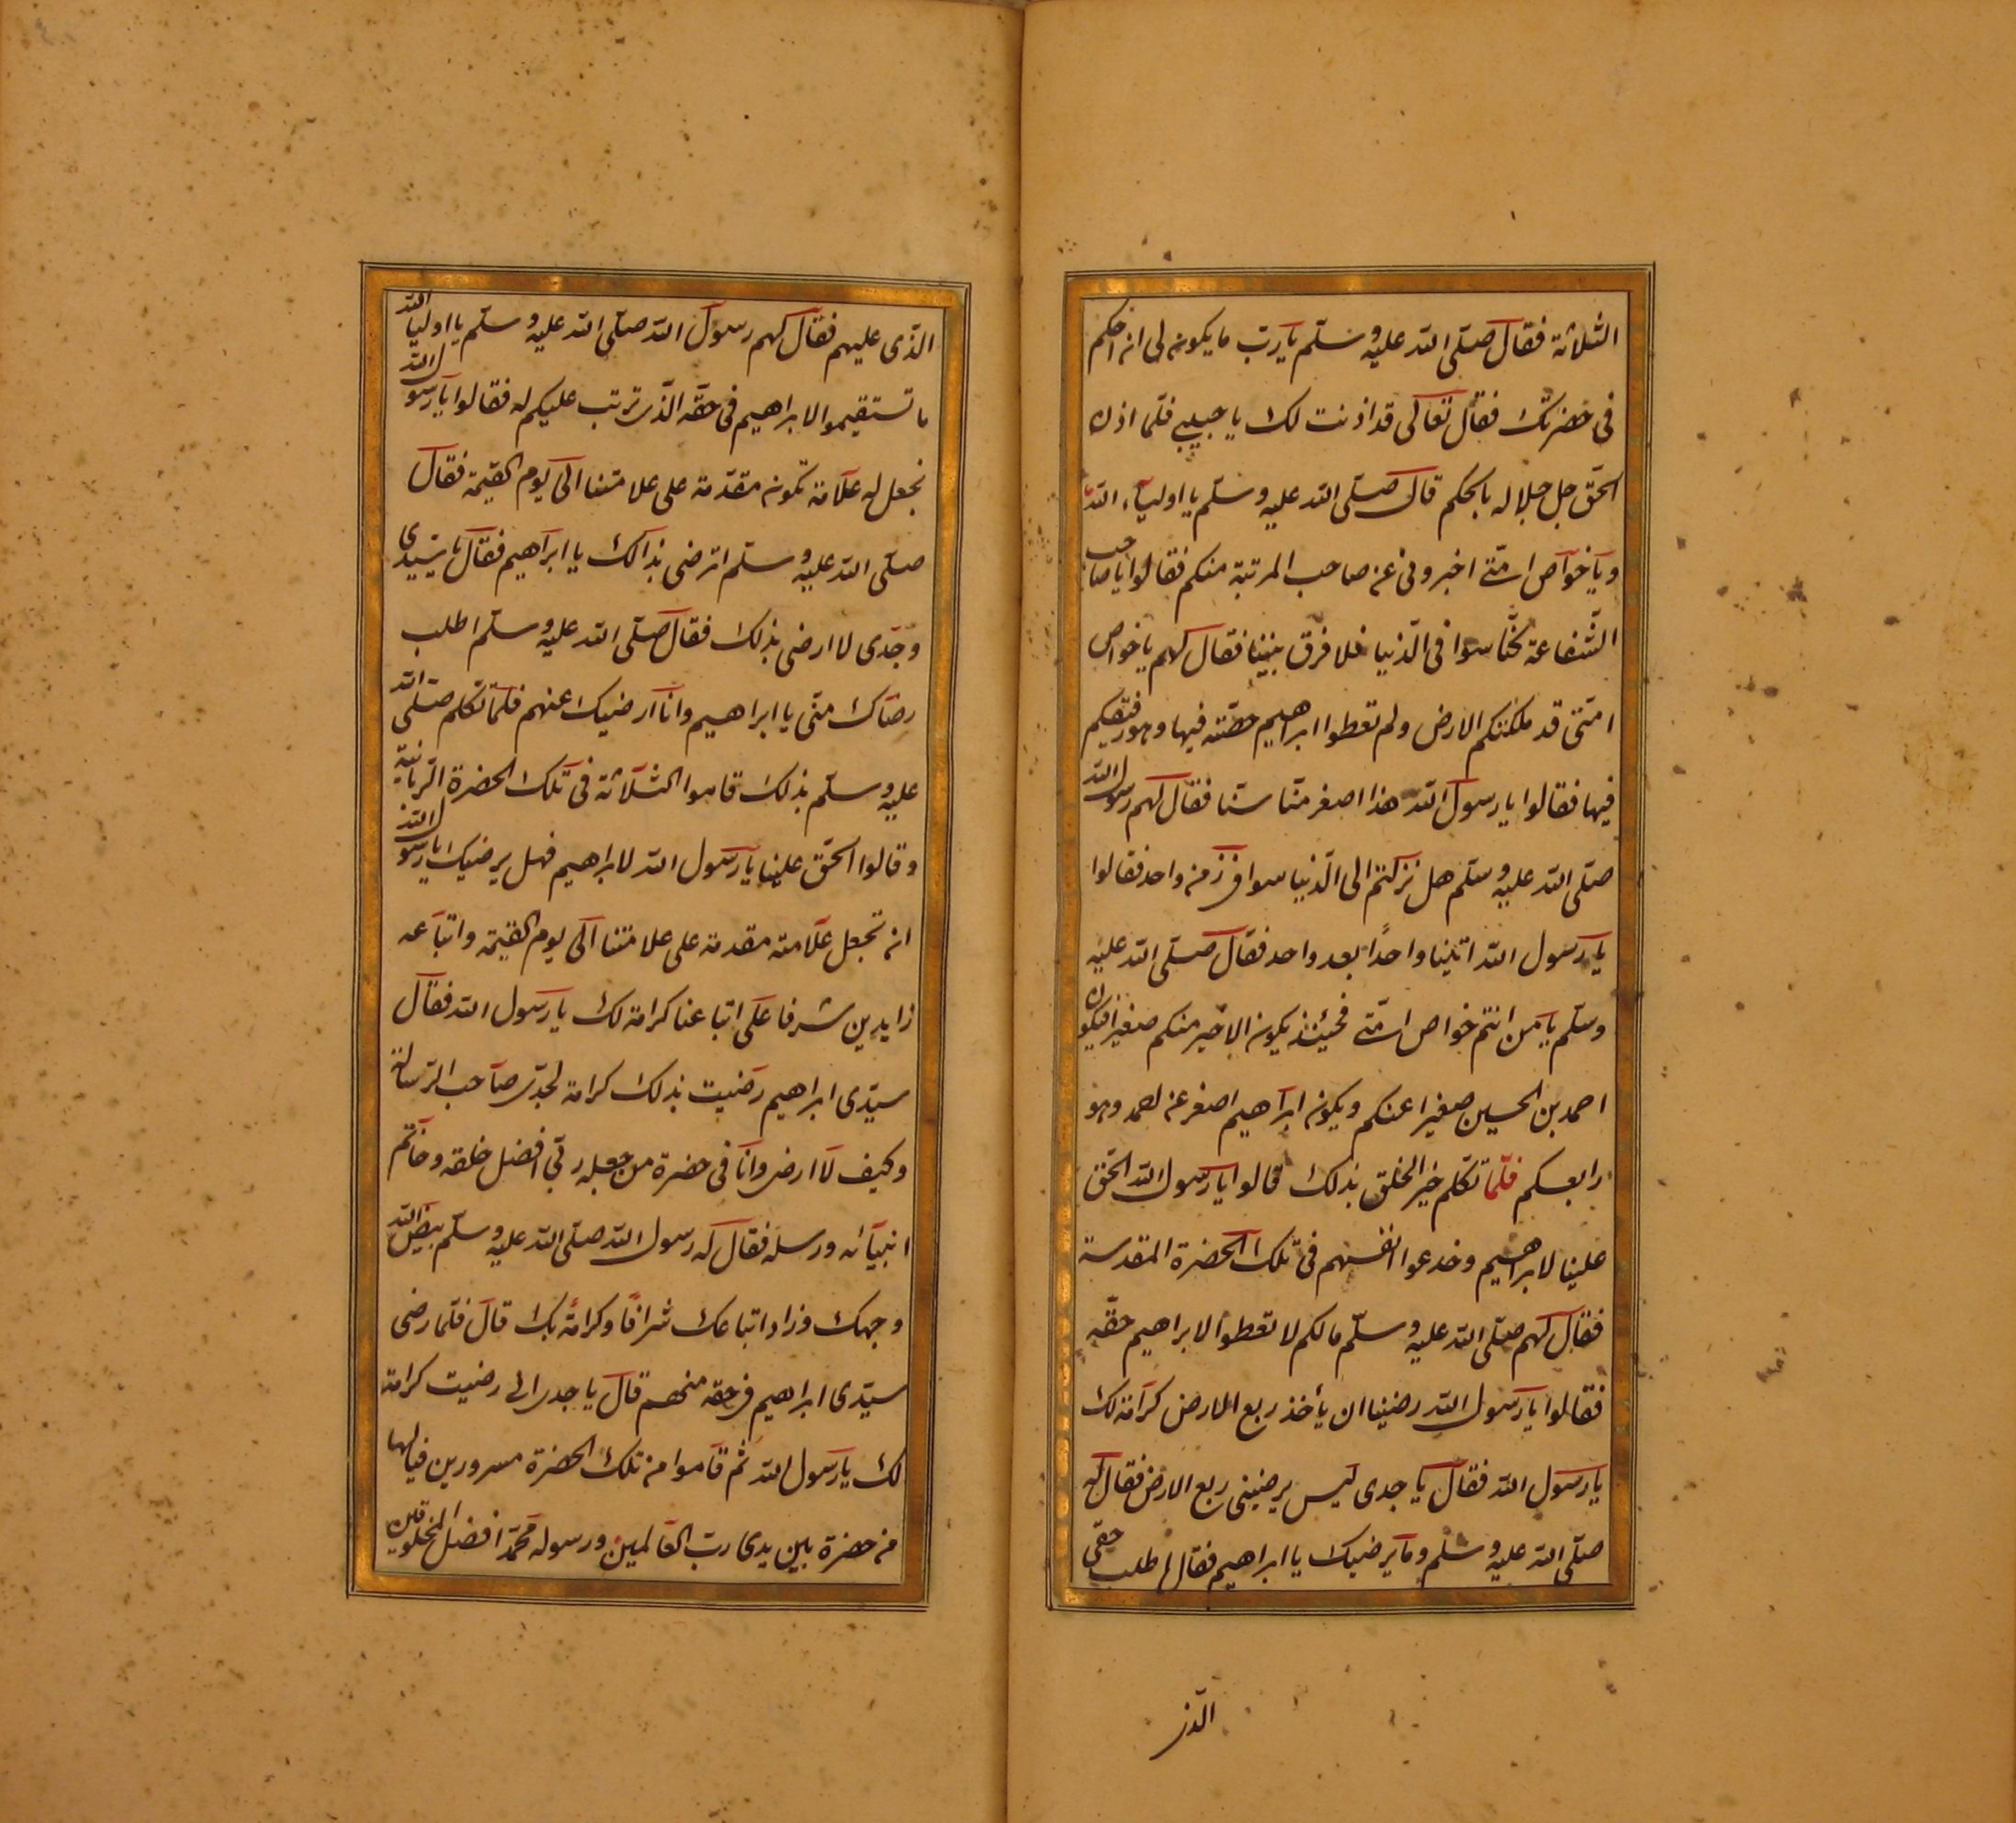 الثلاثة فقال صلّى الله عليه وسلّم يا ربّ ما يكون لى ان احكم
فى حضرتك فقال تعالى قد اذنت لك يا حبيبى فلمّا اذن
الحقّ جل جلاله بالحكم قال صلّى الله عليه وسلّم يا اوليآء الله
ويا خوآص امّتى اخبرونى عن صاحب المرتبة منكم فقالوا يا صاحب
الشّفاعة نحن سوا فى الدّنيا فلا فرق بيننا فقال لهم يا خواص
امّتى قد ملكتكم الارض ولم تعطوا ابراهيم حصّته فيها وهو رفيقكم
فيها فقالوا يا رسول الله هذا اصغر منّا سنّا فقال لهم رسول الله
صلّى الله عليه وسلّم هل نزلتم الى الدّنيا سوا فى زمن واحد فقالوا
يا رسول الله اتينا واحدًا بعد واحد فقال صلّى الله عليه
وسلّم يا من انتم خواص امّتى فحينئذ يكون الاخير منكم صغيرا فيكون
احمد بن الحسين صغيرا عنكم ويكون ابراهيم اصغر عن احمد وهو
رابعكم فلمّا تكلم خير الخلق بذلك قالوا يا رسول الله الحقّ
علينا لابراهيم وخدعوا انفسهم فى تلك الحضرة المقدسة
فقال لهم صلّى الله عليه وسلّم مالكم لا تعطوا لابراهيم حقّه
فقالوا يا رسول الله رضينا ان يأخذ ربع الارض كرامة لك
يا رسول الله فقال يا جدى ليس يرضينى ربع الارض فقال له
صلّى الله عليه وسلّم وما يرضيك يا ابراهيم فقال اطلب حقّى
الذى
الذّى عليهم فقال لهم رسول الله صلّى الله عليه وسلّم يا اوليا الله
ما تستقيموا لابراهيم فى حقّه الذّى ترتب عليكم له فقالوا يا رسول الله
نجعل له علامة تكون مقدّمة على علامتنا الى يوم القيمة فقال
صلّى الله عليه وسلّم اترضى بذالك يا ابراهيم فقال يا سيّدى
وجدّى لا ارضى بذلك فقال صلّى الله عليه وسلّم اطلب
رضاك منّى يا ابراهيم وانا ارضيك عنهم فلمّا تكلم صلّى الله
عليه وسلّم بذلك قاموا الثلاثة فى تلك الحضرة الرّبّانيّة
وقالوا الحقّ علينا يا رسول الله لابراهيم فهل يرضيك يا رسول الله
ان تجعل علامته مقدمة على علامتنا الى يوم القيمة واتباعه
زايدين شرفا على اتباعنا كرامة لك يا رسول الله فقال
سيّدى ابراهيم رضيت بذلك كرامة لجدّى صاحب الرّسالة
وكيف لا ارضى وانا فى حضرة من جعله ربّى افضل خلقه وخاتم
انبيآئه ورسله فقال له رسول الله صلّى الله عليه وسلّم بيّض الله
وجهك وزاد اتباعك شرافًا وكرامًة بك قال فلمّا رضى
سيّدى ابراهيم فى حقه منهم قال يا جدى انى رضيت كرامة
لك يا رسول الله ثم قاموا من تلك الحضرة مسرورين فيالها
من حضرة بين يدى ربّ العالمين ورسوله محمّد افضل المخلوقين